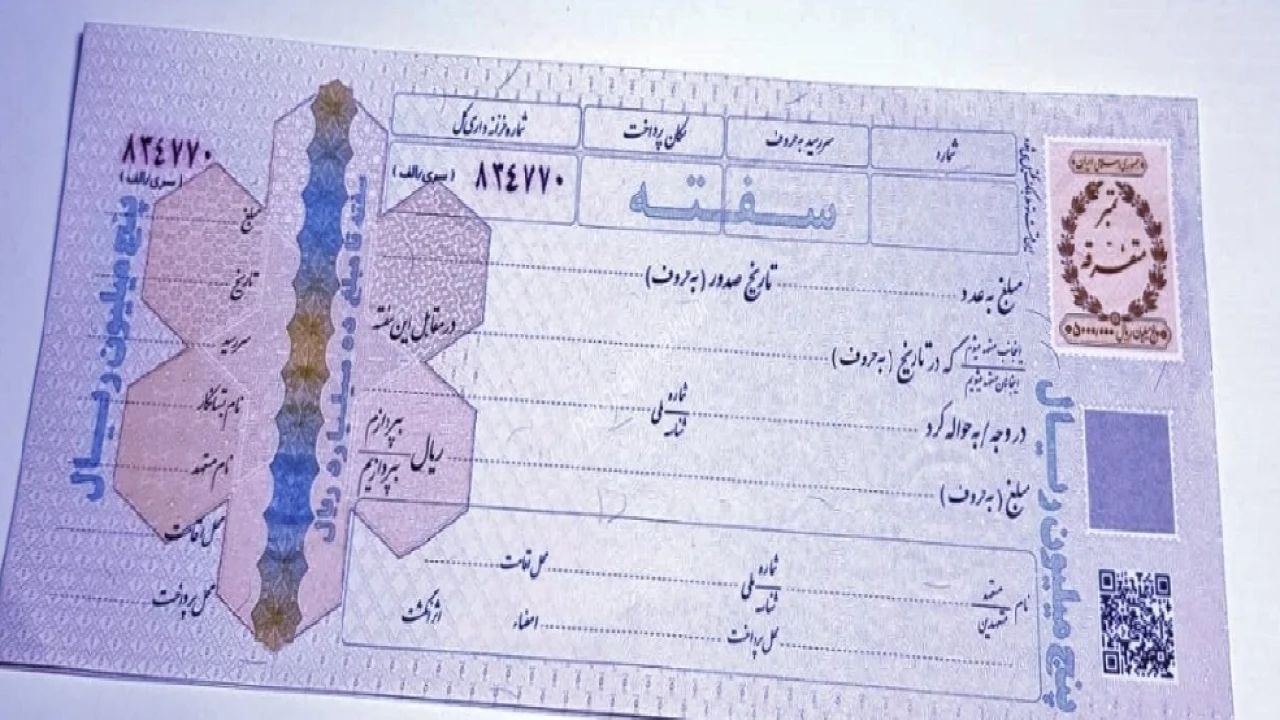 شماره
سررسید به حروف
مکان پرداخت
شماره خزانه داری کل
سفته
۸۳٤۷۷۰
(سری/الف)
مبلغ به عدد
تاریخ صدور (به حروف)
اینجانب متعهد میشوم
اینجانبان متعهد میشویم
که در تاریخ (به حروف)
در مقابل این سفته
در وجه / به حواله کرد
شماره ملی
شناسه
مبلغ (به حروف)
ریال
بپردازم
بپردازیم
نام
متعهد
متعهدین
شماره ملی
شناسه
محل اقامت
محل پرداخت
امضاء
اثر انگشت
جمهوری اسلامی ایران
تمبر
متفرقه
۵۰۰۰/۰۰۰
پنج میلیون ریال
پنج میلیون ریال
سفته تا مبلغ ده میلیارد ریال
۸۳٤۷۷۰
(سری/الف)
مبلغ
تاریخ
سررسید
نام بستانکار
نام متعهد
محل اقامت
محل پرداخت
پنج میلیون ریال